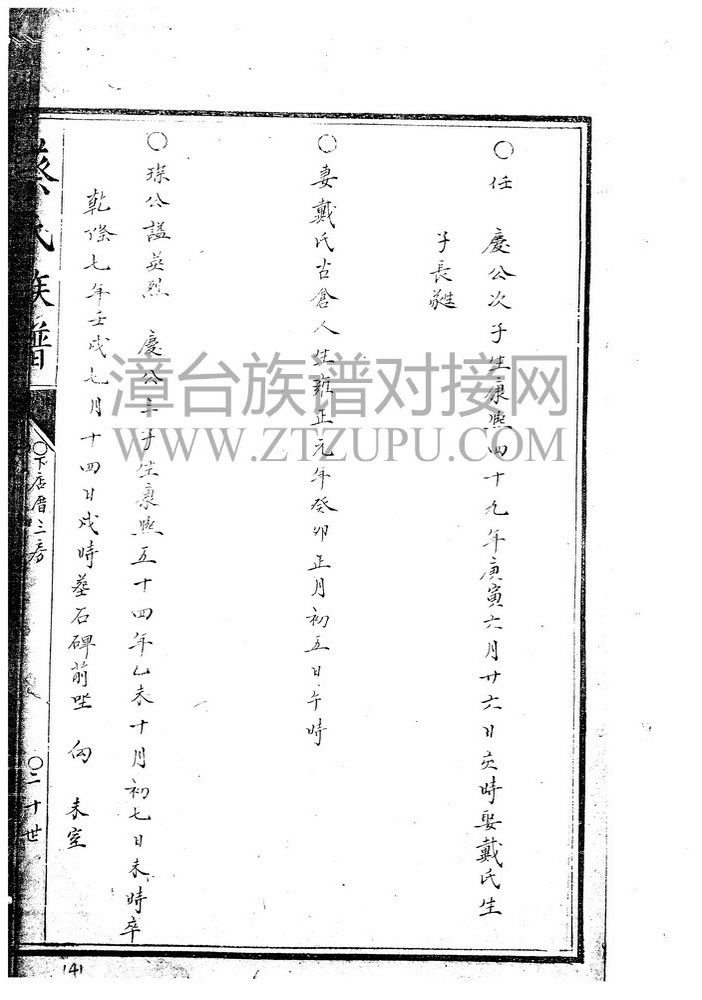 ○任 慶公次子生康熙四十九年庚寅六月廿六日亥時娶戴氏生
子長
○妻戴氏古倉人生雍正元年癸卯正月初五日午時
○琛公諡英烈 慶公三子生康熙五十四年乙未十月初七日未時卒
乾隆七年壬戌七月十四日戌時墓石碑前坐 向 未室
蔡氏族譜
○下店厝三房
○二十世
141
漳台族谱对接网
WWW.ZTZUPU.COM